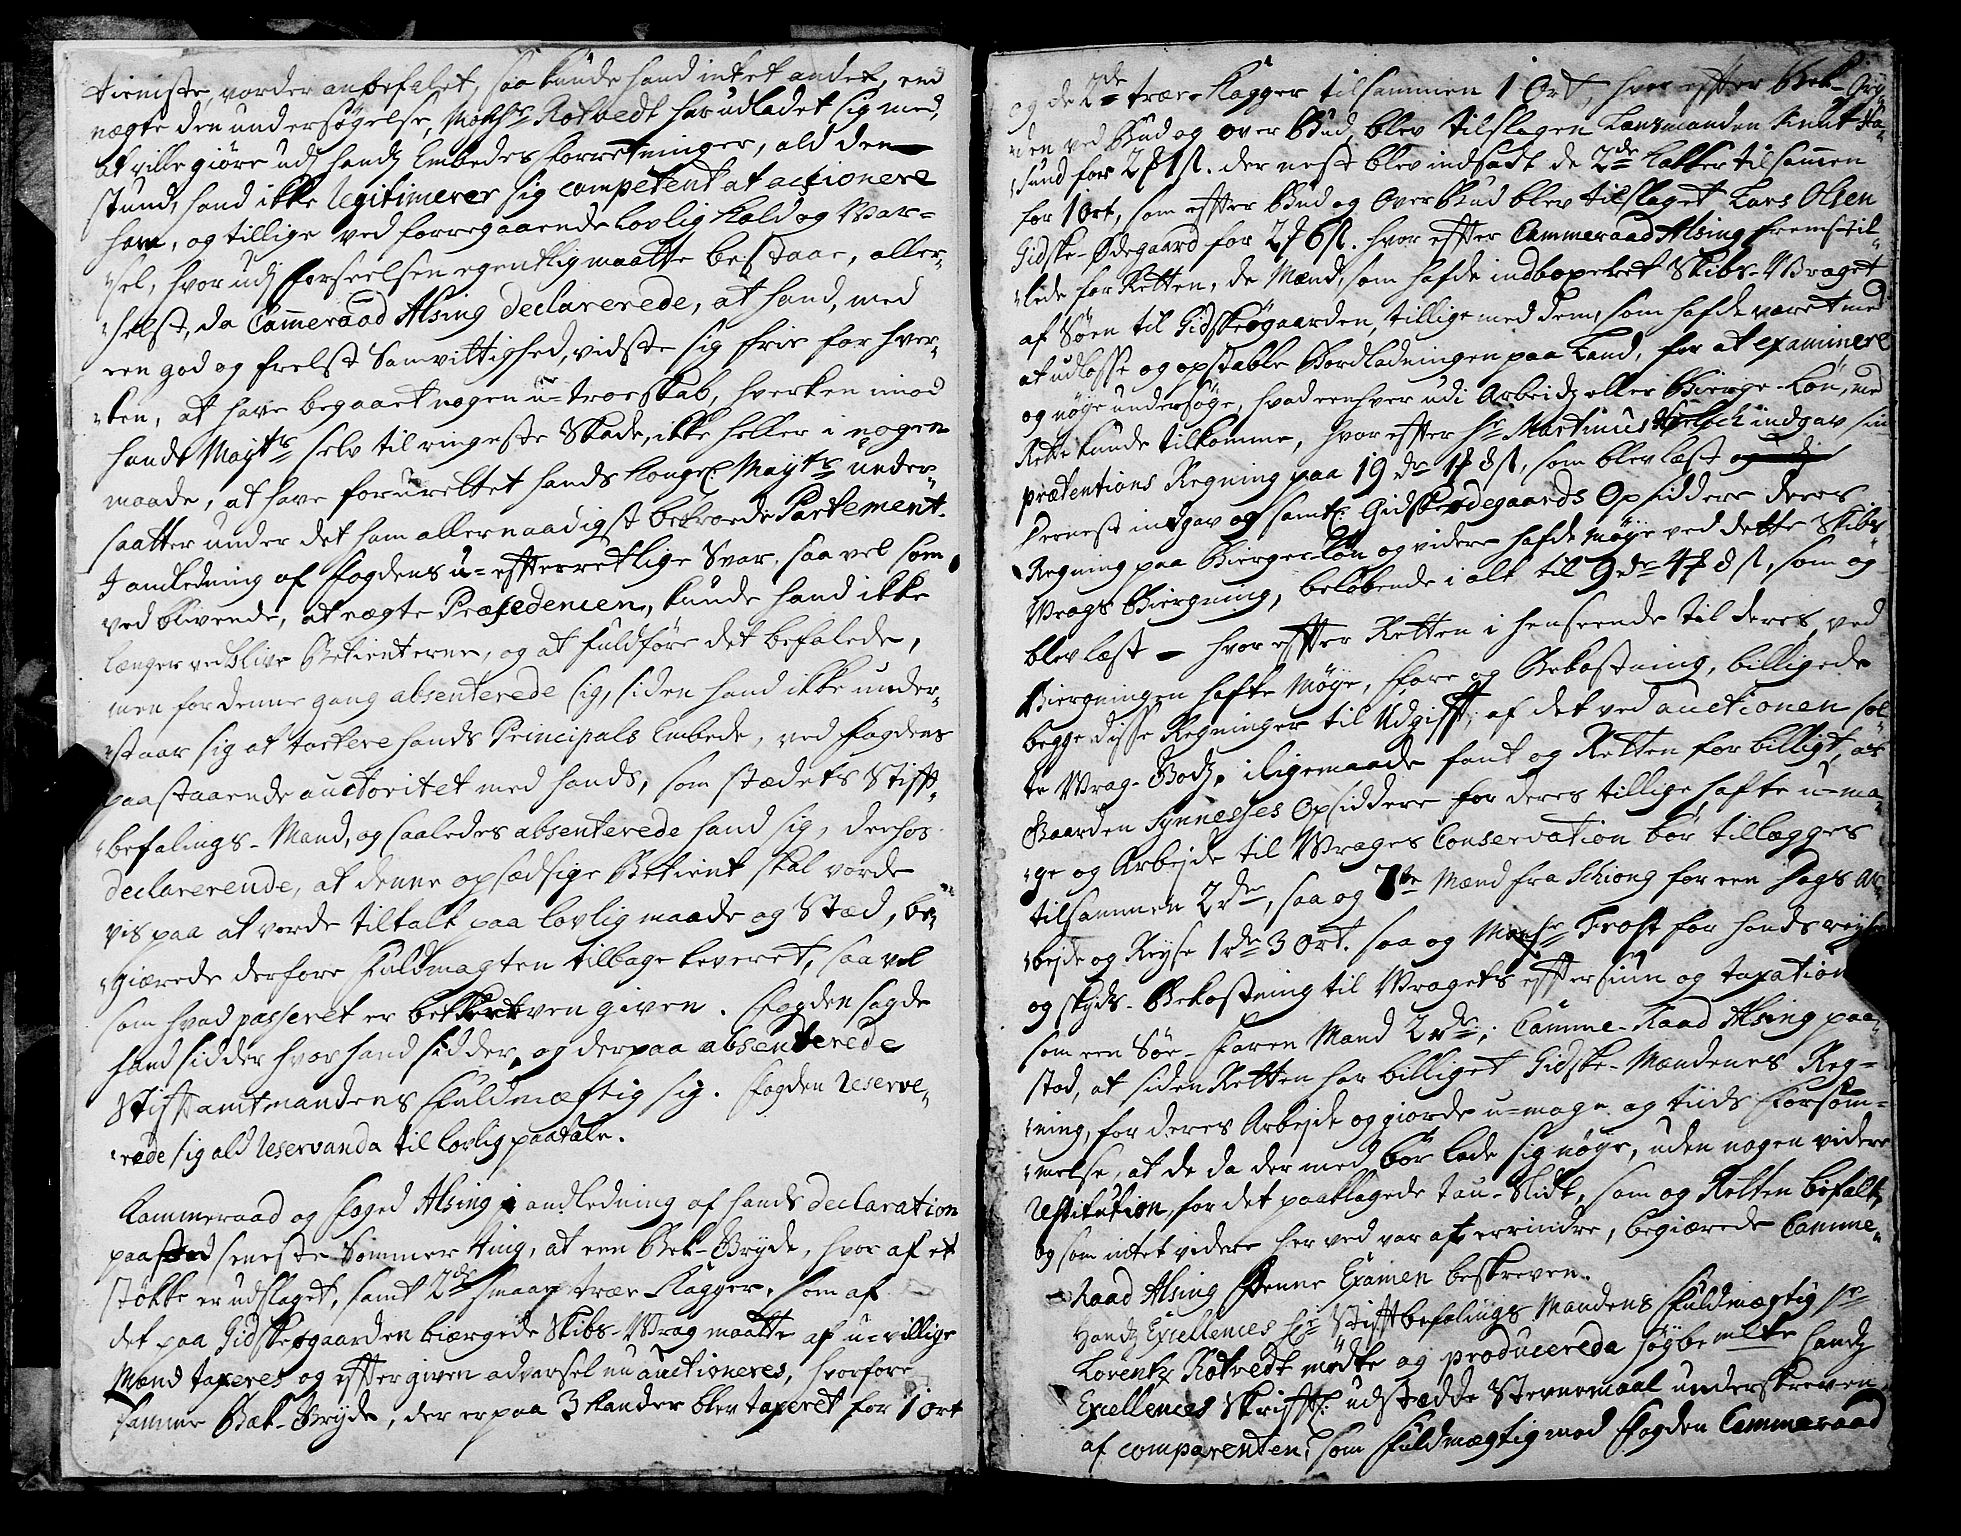 tieniste, vorder anbefalet, saa kunde hand intet andet, end
nægte den undersøgelse, Monsr Rotvedt har udladet sig med,
at ville giøre udj handz Embedes forretninger, ald den
stund, hand ikke legitimerer sig competent at actionere
ham, og tillige ved forregaaende lovlig Kald og Var-
sel, hvor udj forseelsen egentlig maatte bestaae, aller-
helst, da Cammeraad Alsing declarerede, at hand, med
een god og frelst Samvittighed, vidste sig frie for hver-
ken, at have begaaet nogen u-troeskab, hverken imod
hands Maytz selv til ringeste Skade, ikke heller i nogen
maade, at have forurettet hands Kongl Mayts under-
saatter under det ham allernaadigst betroede Partement.
I anledning af fogdens u-efterretlige Svar, saa vel som
ved blivende, at nægte Præsedencen, kunde hand ikke
længer ved blive Betienterne, og at fuldføre det befalede,
men for denne gang absenterede sig, siden hand ikke under-
staar sig at torkere hands Principals Embede, ved fogdens
paastaaende auctoritet med hands, som stædets Stift-
befalings-Mand, og saaledes absenterede hand sig, derhos
declarerende, at denne opsædsige Betient skal vorde
vis paa at vorde tiltalt paa lovlig maade og Stæd, be-
giærede derfore fuldmagten tilbage leveret, saa vel
som hvad passeret er beskreven given. Fogden sagde
hand sidder hvor hand sidder, og derpaa absenterede
Stiftamtmandens fuldmægtig sig. Fogden reserve-
rede sig ald reservanda til lovlig paatale.
Kammeraad og foged Alsing i andledning af hands declaration
paa seneste Sommer ting, at een Bek-Bryde, hvor af et
støkke er udslaget, samt 2de smaae træe Kagger, som af
det paa Gidskeøgaarden biærgede Skibs-Vrag maatte af u-villige
Mænd taxeres og efter given advarsel nu auctioneres, hvorfore
samme Bek-Bryde, der er paa 3 Kander blev taxeret for 1 ort
og de 2de træe Kagger tilsammen 1 Ort, hvor efter Bek-Bry-
den ved Bud og over Bud, blev tilslagen Lensmanden Knut Ha-
sund for 2 1ſ. der nest blev indsadt de 2de Kaller tilsamen
for 1 ort, som efter Bud og Over Bud blev tilslaget Lars Olsen
Gidske-Ødegaard for 2 6ſ. hvor efter Cammeraad Alsing fremstil-
lede for Retten, de Mænd, som hafde indboxeret Skibs-Vraget
af Søen til Gidskeøgaarden, tillige med dem, som hafde været med
at udlosse og opstable Bordladningen paa Land, for at examinere
og nøye undersøge, hvad eenhver udi Arbeidz eller Bierge-Løn, med
Rette kunde tilkomme, hvor efter Hr Martinus indgav sin
prætentions Regning paa 19 dr 1 8ſ, som blev læst
Dernest indgav og samtl Gidskeødegaards Opsiddere deres
Regning paa Bierge Løn og videre hafde Møye ved dette Skibs
Vrags Biergning, beløbende i alt til 9 dr 4 8ſ, som og
blev læst - hvor efter Retten i henseende til deres ved
Biergningen hafte Møye, fare og Bekostning, billigede
begge disse Regninger til Udgift, af det ved auctionen sol-
te Vrag-Godz, iligemaade fant og Retten for billigt, at
Gaarden Synneses Opsiddere for deres tillige hafte u-ma-
ge og Arbejde til Vragets Conservation bør tillægges
tilsammen 2 dr, saa og 7ve Mænd fra Schiong for een Dags Ar-
bejde og Reyse 1 dr 3 Ort. saa og Monsr Frost for hands reyse
og skyds-Bekostning til Vragets eftersiun og taxation
som een Søe-faren Mand 2 dr; Camme-Raad Alsing paa-
stod, at siden Retten har billiget Gidske-Mændenes Reg-
ning, for deres Arbejde og giorde u-mage og tiids forsøm-
melse, at de da der med bør lade sig nøye, uden nogen videre
restitution, for det paaklagede tau-Slidt, som og Retten bifalt,
og som intet videre her ved var at errindre, begiærede Camme-
Raad Alsing denne Examen beskreven.
Handz Excellences Hr Stiftbefalings Mandens fuldmægtig Sr
Lorentz Rotvedt mødte og producerede høybemelte handz
Excellences Skriftl: udstædde Stevnemaal underskreven
af comparenten, som fuldmægtig mod fogden Cammeraad